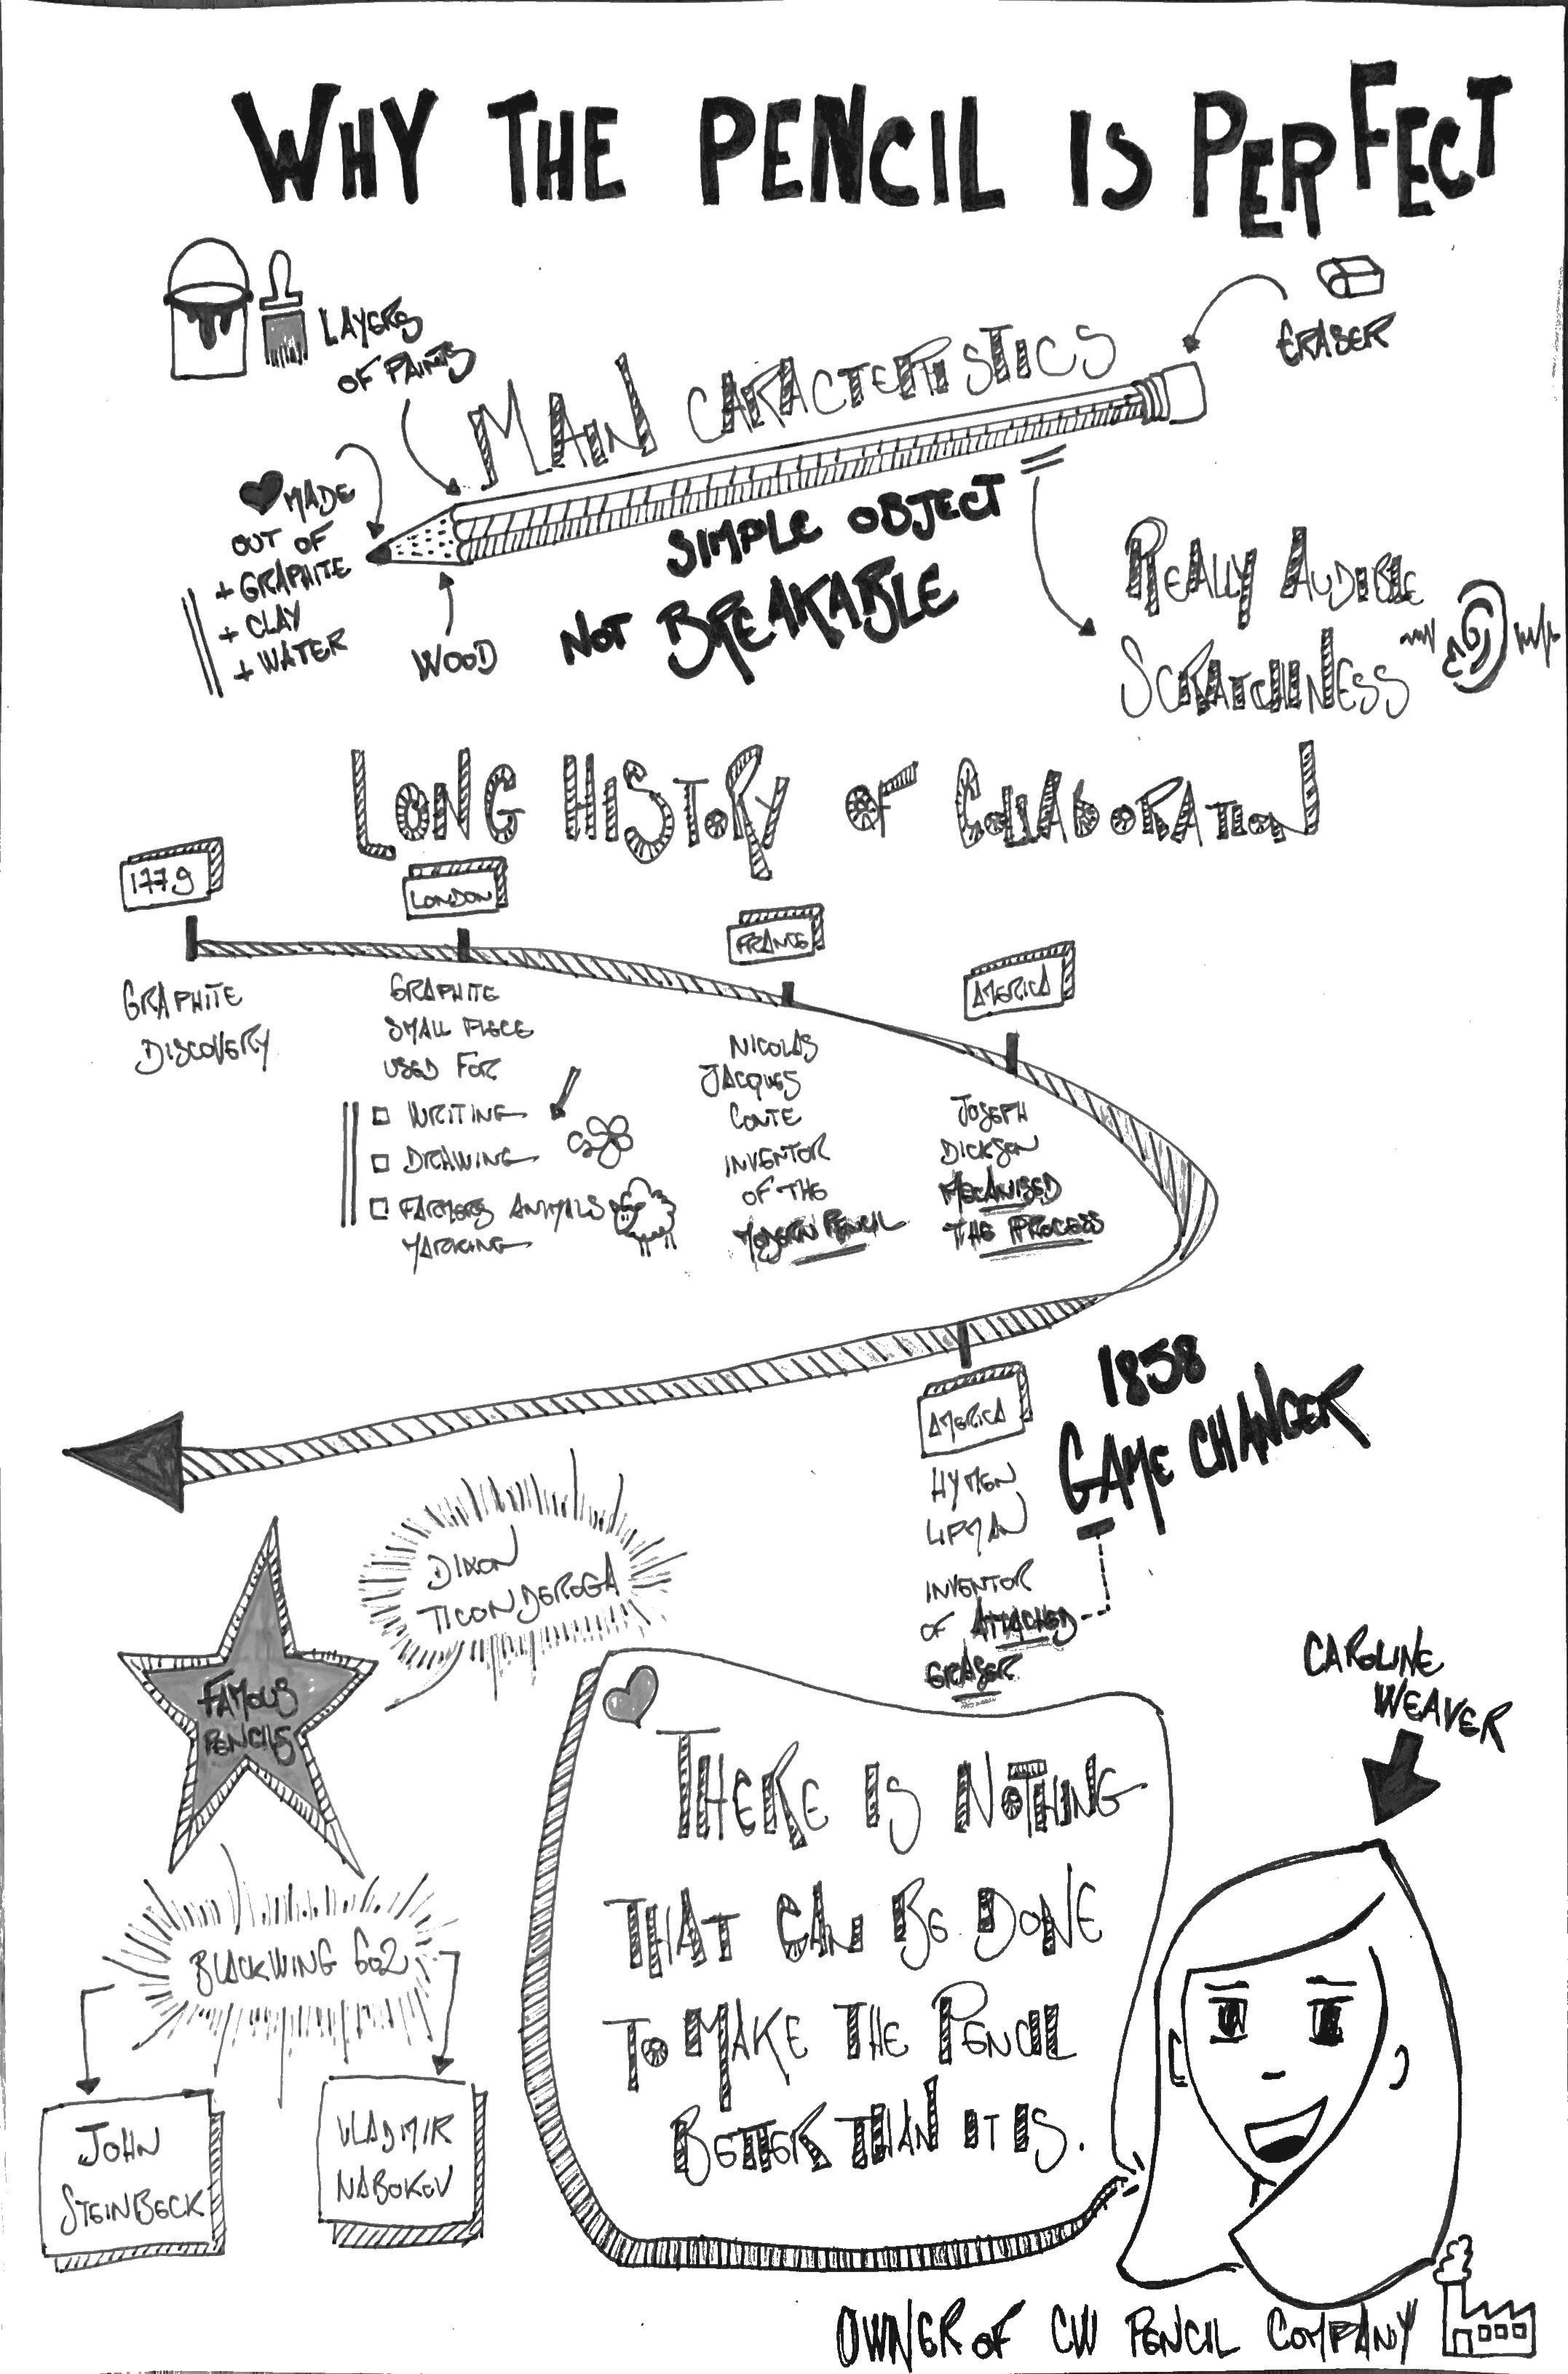 WHY THE PENCIL IS PERFECT
LAYERS
OF PAINTS
MAIN CARACTERISTICS
ERASER
MADE
OUT OF
+ GRAPHITE
+ CLAY
+ WATER
WOOD
SIMPLE OBJECT
NOT BREAKABLE
REALLY AUDIBLE
SCRATCHINESS
LONG HISTORY OF COLLABORATION
1779
GRAPHITE
DISCOVERY
LONDON
GRAPHITE
SMALL PIECE
USED FOR
WRITING
DRAWING
FARMERS ANIMALS
MARKING
FRANCE
NICOLAS
JACQUES
CONTE
INVENTOR
OF THE
MODERN PENCIL
AMERICA
JOSEPH
DICKSON
MECANISED
THE PROCESS
AMERICA
HYMEN
LIPMAN
INVENTOR
OF ATTACHED
ERASER
1858
GAME CHANGER
FAMOUS
PENCILS
DIXON
TICONDEROGA
BLACKWING 602
JOHN
STEINBECK
VLADMIR
NABOKOV
THERE IS NOTHING
THAT CAN BE DONE
TO MAKE THE PENCIL
BETTER THAN IT IS.
CAROLINE
WEAVER
OWNER OF CW PENCIL COMPANY